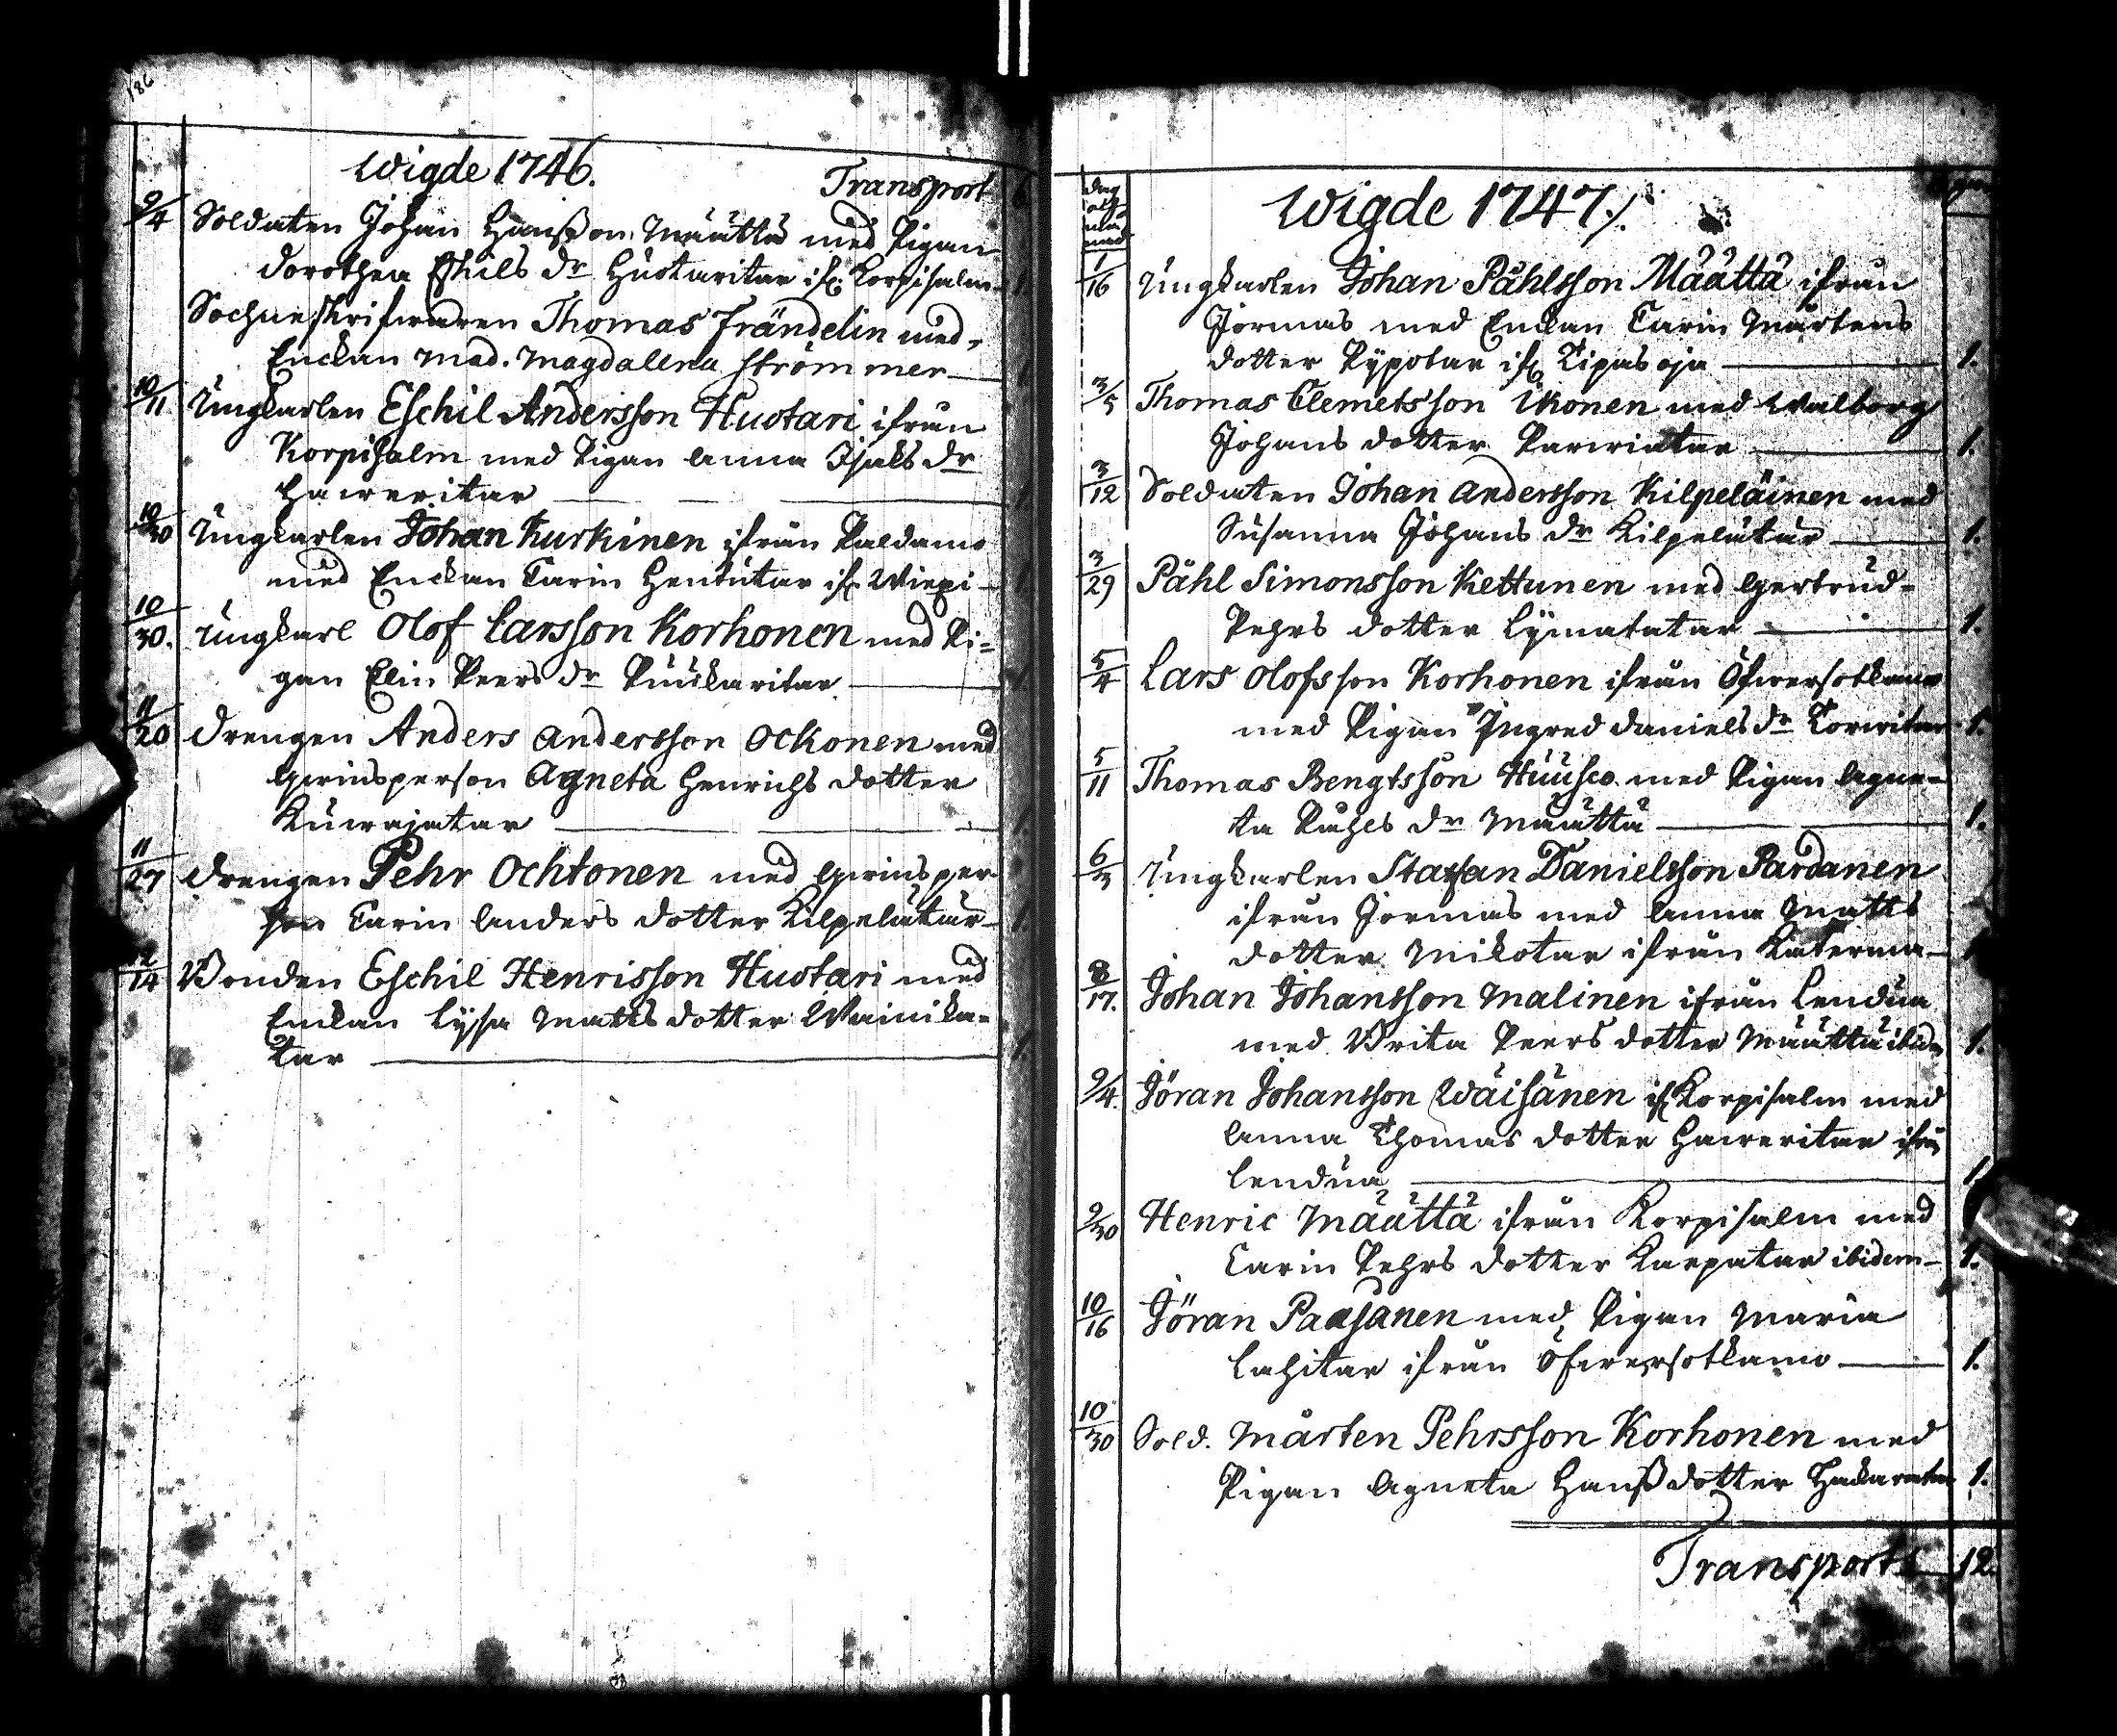 186
Wigde 1746.
Transport 6
9/4 Soldaten Johan Hanßon Määttä med Pigan
Dorothea Eskils dr Huotaritar ifr. Korpisalm 1.
Sochneskrifwaren Thomas Frändelin med
Enckan Mad. Magdallena Strömmer 1
10/11 Ungkarlen Eschil Andersson Huotari ifrån
Korpisalm med Pigan Anna Isaks dr
Haweritar
10/30 Ungkarlen Johan Kurkinen ifrån Paldamo
med Enckan Carin Hendutar ifr Wiexi 1
10/30. Ungkarl Olof Larsson Korhonen med Pi=
gan Elin Peers dr Puukaritar 1
11/20 Drengen Anders Andersson Ockonen med
Qwinsperson Agneta Henrichs dotter
Kuwajatar 1.
11/27 Drengen Pehr Ochtonen med Qwinsper-
son Carin Anders dotter Kilpelätär 1.
12/14 Bonden Eschil Henrisson Huotari med
Enckan Lyssa Matts dotter Wainika=
tar 1.
dag
och
må
nad
Wigde 1747./.
1/16 Ungkarlen Johan Påhlsson Määttä ifrån
Jormas med Enckan Carin Mårtens
dotter Pypotar ifr Tipasoja 1.
3/5 Thomas Clemetsson Ikonen med Walborg
Johans dotter Parwiatar 1.
3/12 Soldaten Johan Andersson Kilpeläinen med
Susanna Johans dr Kilpelätär 1.
3/29 Påhl Simonsson Kettunen med Gertrud=
Pehrs dotter Lymatatar 1.
5/4 Lars Olofsson Korhonen ifrån Öfwersotkamo
med Pigan Ingred Daniels dr Torwitar 1.
5/11 Thomas Bengtsson Huusco med Pigan Agne-
ta Påhls dr Määttä 1.
6/3 Ungkarlen Staffan Danielsson Pardanen
ifrån Jormas med Anna Matts
dotter Mikotar ifrån Katerma 1
8/17. Johan Johansson Malinen ifrån Lendua
med Brita Peers dotter Määttä ibidm 1.
9/4. Jöran Johansson Wäisänen ifr Korpisalm med
Anna Thomas dotter Haweritar ifrån
Lendua 1.
9/30 Henric Määttä ifrån Korpisalm med
Carin Pehrs dotter Karpatar ibidem 1.
10/16 Jöran Paasanen med Pigan Maria
Lahitar ifrån Öfwersotkamo 1.
10/30 Sold. Mårten Pehrsson Korhonen med
Pigan Agneta Hanß dotter Hakaratar 1.
Transport 12.